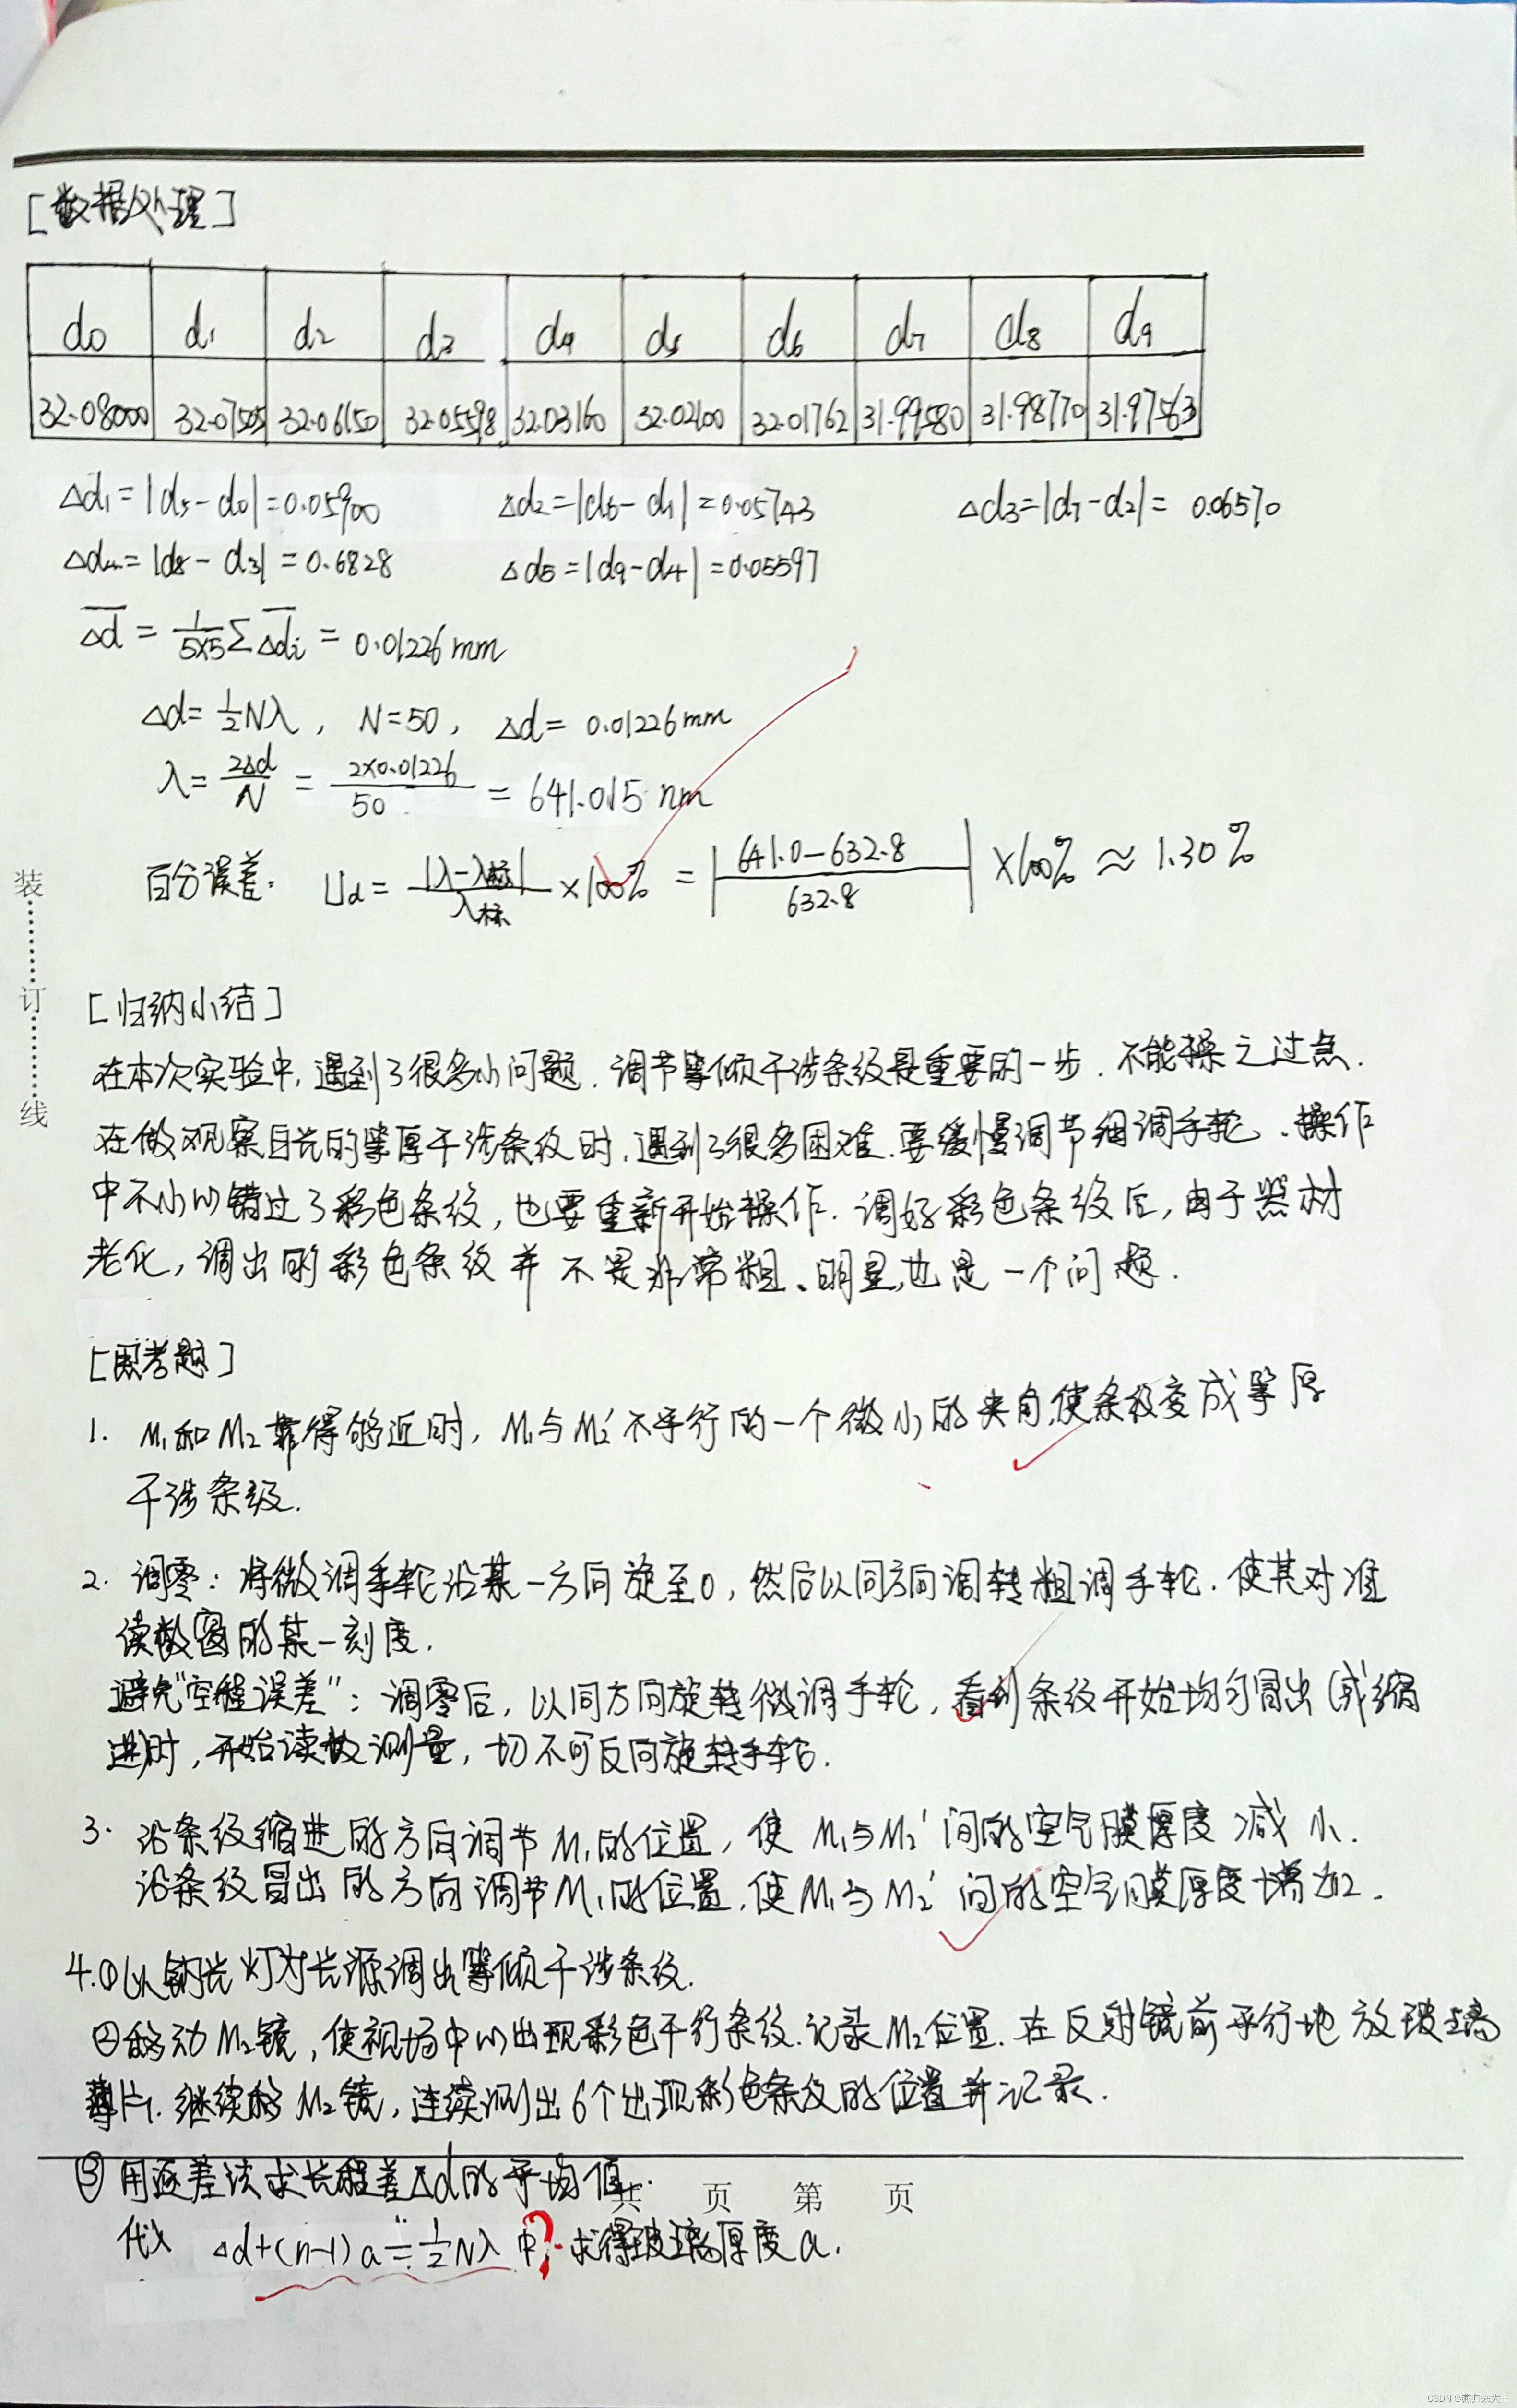 [数据处理]
d0 d1 d2 d3 d4 d5 d6 d7 d8 d9
32.08000 32.07505 32.06150 32.05598 32.03160 32.02100 32.01762 31.99580 31.98770 31.97563
Δd1=|d5-d0|=0.05900 Δd2=|d6-d1|=0.05743 Δd3=|d7-d2|= 0.06570
Δd4=|d8-d3|=0.6828 Δd5=|d9-d4|=0.05597
Δd = 1/5×5 Σ Δdi = 0.01226mm
Δd=1/2Nλ, N=50, Δd= 0.01226mm
λ= 2Δd/N = 2×0.01226/50 = 641.015 nm
百分误差: Ud = |λ-λ标|/λ标 ×100% = |641.0-632.8/632.8| ×100% ≈ 1.30%
[归纳小结]
在本次实验中,遇到了很多小问题.调节等倾干涉条纹是重要的一步.不能操之过急.
在做观察白光的等厚干涉条纹时,遇到了很多困难.要缓慢调节细调手轮、操作
中不小心错过了彩色条纹,也要重新开始操作.调好彩色条纹后,由于器材
老化,调出的彩色条纹并不是非常粗、明显,也是一个问题.
[思考题]
1. M1和M2靠得够近时,M1与M2'不平行的一个微小的夹角,使条纹变成等厚
干涉条纹.
2. 调零:将微调手轮沿某一方向旋至0,然后以同方向调转粗调手轮.使其对准
读数窗的某一刻度.
避免"空程误差":调零后,以同方向旋转微调手轮,看到条纹开始均匀冒出(或缩
进)时,开始读数测量,切不可反向旋转手轮.
3. 沿条纹缩进的方向调节M1的位置,使M1与M2'间的空气膜厚度减小.
沿条纹冒出的方向调节M1的位置,使M1与M2'间的空气膜厚度增加.
4.①以钠光灯为光源调出等倾干涉条纹.
②移动M2镜,使视场中心出现彩色干行条纹.记录M2位置.在反射镜前平行地放玻璃
薄片.继续移M2镜,连续测出6个出现彩色条纹的位置并记录.
③用逐差法求光程差Δd的平均值.
共 页 第 页
代入 Δd+(n-1)a=1/2Nλ 中?求得玻璃厚度a.
装
订
线
CSDN @燕归来大王